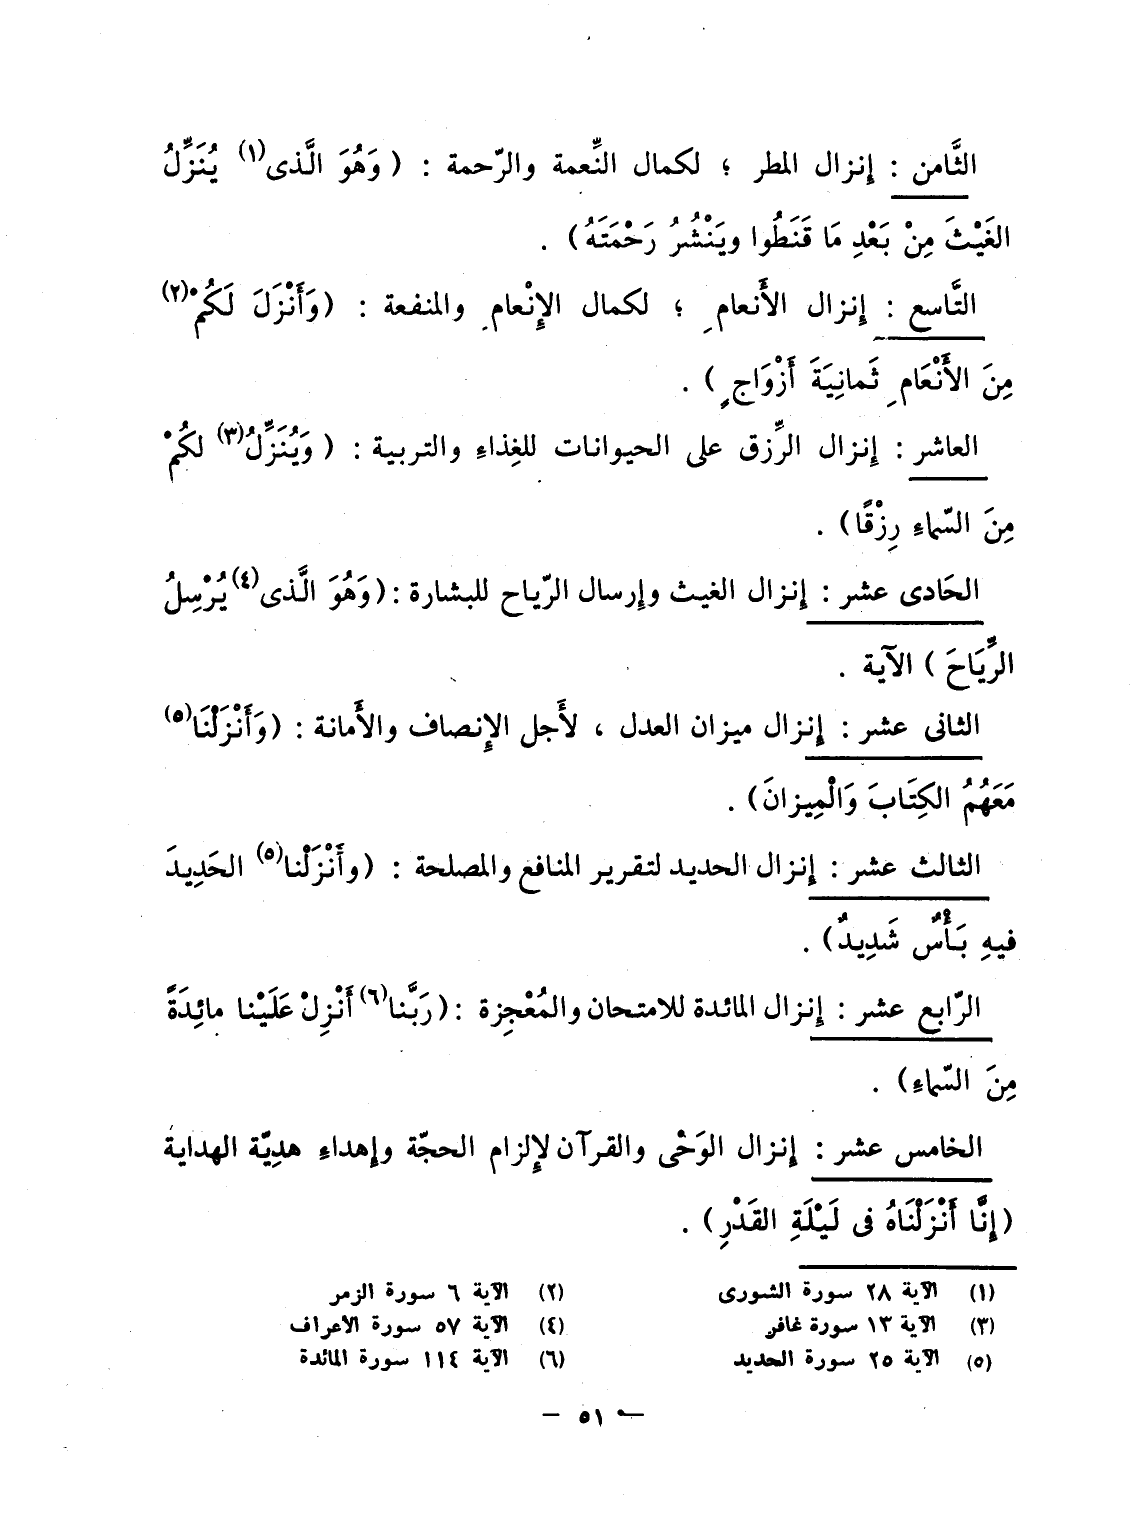 الثَّامن : إنزال المطر ؛ لكمال النِّعمة والرّحمة : ( وَهُوَ الَّذى(١) يُنَزِّلُ
الغَيْثَ مِنْ بَعْدِ مَا قَنَطُوا ويَنْشُرُ رَحْمَتَهُ) .
التَّاسع : إنزال الأَنعامِ ؛ لكمال الإِنْعامِ والمنفعة : (وَأَنْزَلَ لَكُمْ(٢)
مِنَ الأَنْعَامِ ثَمانِيَةَ أَزْوَاجٍ ) .
العاشر : إنزال الرِّزق على الحيوانات للغِذاءِ والتربية : ( وَيُنَزِّلُ(٣) لكُمْ
مِنَ السّماءِ رِزْقًا) .
الحَادى عشر : إنزال الغيث وإرسال الرّياح للبشارة : (وَهُوَ الَّذى(٤) يُرْسِلُ
الرِّيَاحَ ) الآية .
الثانى عشر : إنزال ميزان العدل ، لأَجل الإِنصاف والأَمانة : (وَأَنْزَلْنَا(٥)
مَعَهُمُ الكِتَابَ وَالْمِيزانَ) .
الثالث عشر : إنزال الحديد لتقرير المنافع والمصلحة : (وأَنْزَلْنا(٥) الحَدِيدَ
فيهِ بَأْسٌ شَدِيدٌ) .
الرّابع عشر : إنزال المائدة للامتحان والمُعْجِزة : (رَبَّنا(٦) أَنْزِلْ عَلَيْنا مائِدَةً
مِنَ السّماءِ) .
الخامس عشر : إنزال الوَحْى والقرآن لإِلزام الحجّة وإهداءِ هدِيّة الهداية
(إِنَّا أَنْزَلْنَاهُ فى لَيْلَةِ القَدْرِ) .
(١) الآية ٢٨ سورة الشورى (٢) الآية ٦ سورة الزمر
(٣) الآية ١٣ سورة غافر (٤) الآية ٥٧ سورة الأعراف
(٥) الآية ٢٥ سورة الحديد (٦) الآية ١١٤ سورة المائدة
— ٥١ —